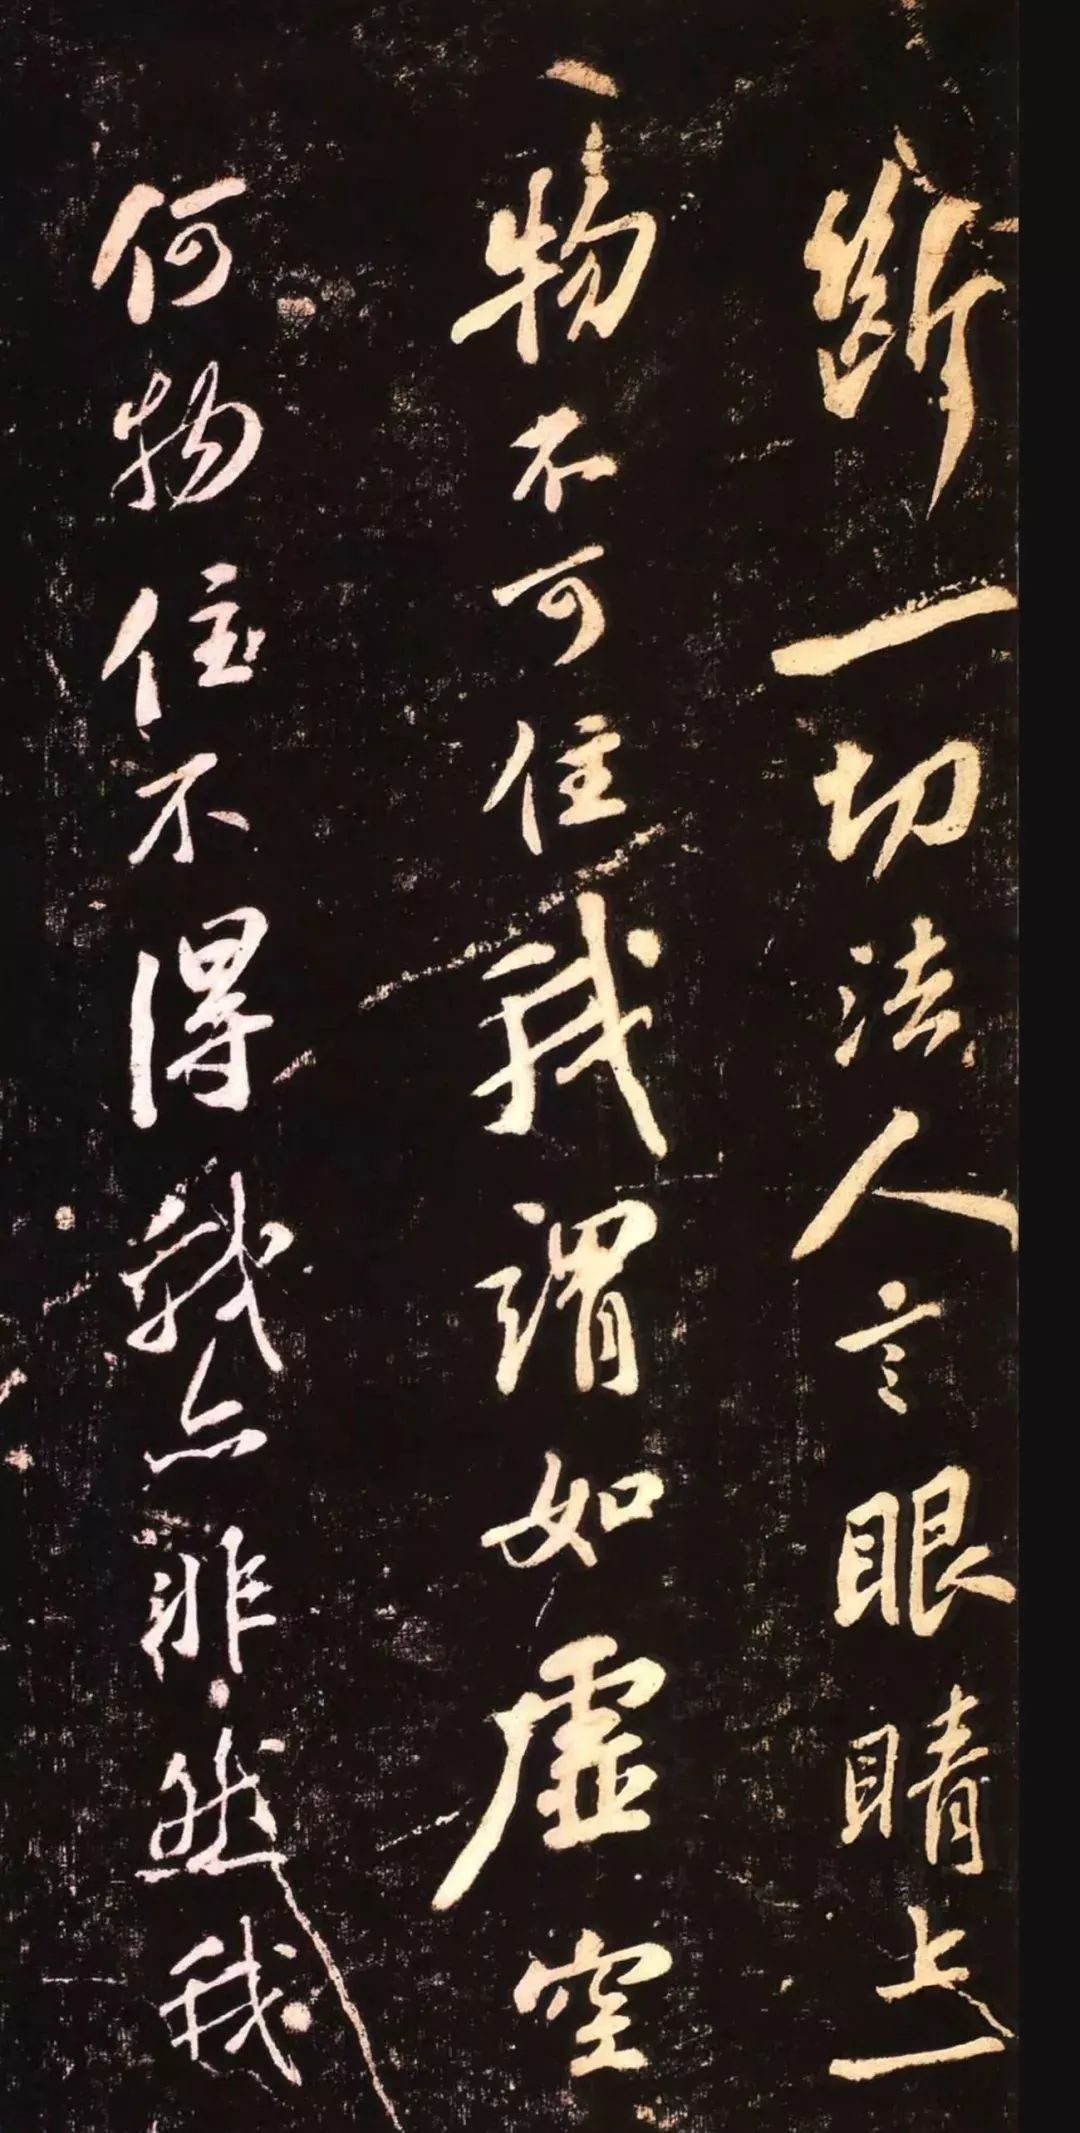 断一切法人言眼睛上
一物不可住我謂如虛空
何物住不得我亦非然我